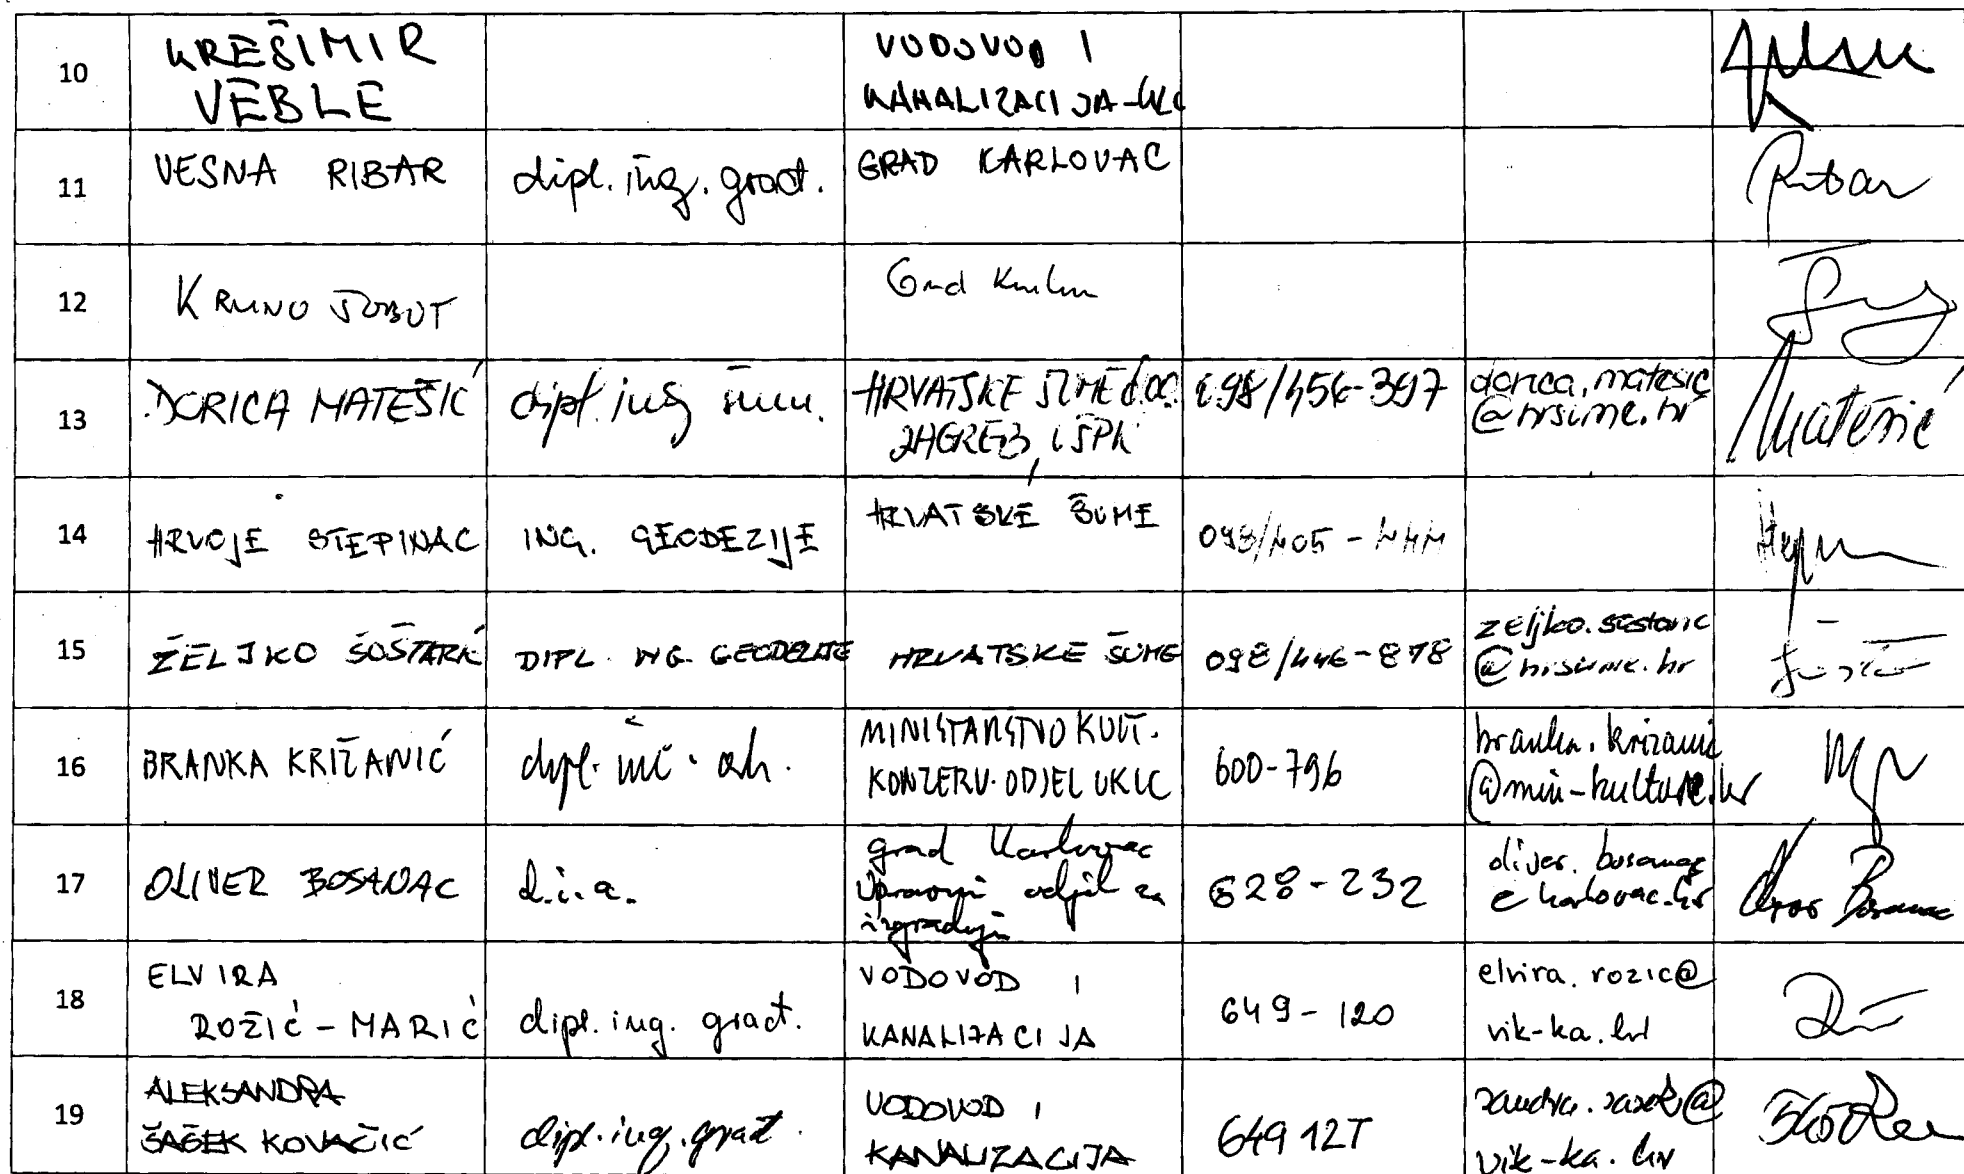 10
KREŠIMIR
VEBLE
VODOVOD I
KANALIZACIJA-
11
VESNA RIBAR
dipl. ing. građ.
GRAD KARLOVAC
Ribar
12
KRUNO
Grad
13
DORICA MATEŠIĆ
dipl. ing šum.
HRVATSKE ŠUME d.o.o.
ZAGREB,
098/456-397
dorica.matesic
@hrsume.hr
Matešić
14
HRVOJE STEPINAC
ING. GEODEZIJE
HRVATSKE ŠUME
15
ŽELJKO ŠOŠTARIĆ
DIPL. ING. GEODEZIJE
HRVATSKE ŠUME
098/446-878
zeljko.sostaric
@hrsume.hr
16
BRANKA KRIŽANIĆ
dipl. inž. arh.
MINISTARSTVO KULT.
KONZERV. ODJEL U KLC
600-796
branka.krizanic
@min-kulture.hr
17
OLIVER BOSANAC
d.i.a.
grad Karlovac
Upravni odjel za
izgradnju
628-232
oliver.bosanac
@karlovac.hr
Bosanac
18
ELVIRA
ROŽIĆ-MARIĆ
dipl. ing. građ.
VODOVOD I
KANALIZACIJA
649-120
elvira.rozic@
vik-ka.hr
19
ALEKSANDRA
ŠAŠEK KOVAČIĆ
dipl. ing. građ.
VODOVOD I
KANALIZACIJA
649 127
@
vik-ka.hr